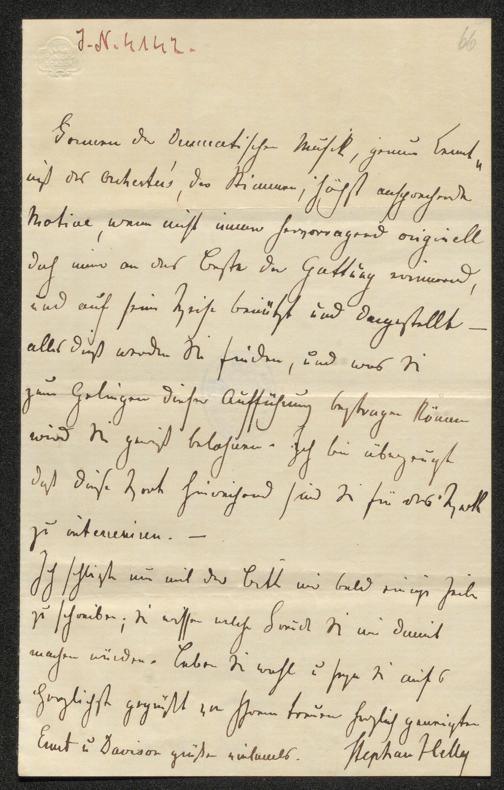 J.-N. 4142.
66
Formen der dramatischen Musik, genaue Kennt„
niß des Orchesters, der Stimmen, höchst ansprechende
Motive, wenn nicht immer hervorragend originell
doch immer an das Beste der Gattung erinnernd,
und auf feine Weise benützt und dargestellt —
alles dieß werden Sie finden, und was Sie
zum Gelingen dieser Aufführung beytragen können
wird Sie gewiß belohnen. Ich bin überzeugt
daß diese Worte hinreichend sind Sie für das Werk
zu interessiren. —
Ich schließe nun mit der Bitte mir bald einige Zeilen
zu schreiben; Sie wissen welche Freude Sie mir damit
machen würden. Leben Sie wohl u seyn Sie aufs
herzlichste gegrüßt von Ihrem treuen herzlich geneigten
Ernst u Davison grüßen vielmals. Stephan Heller